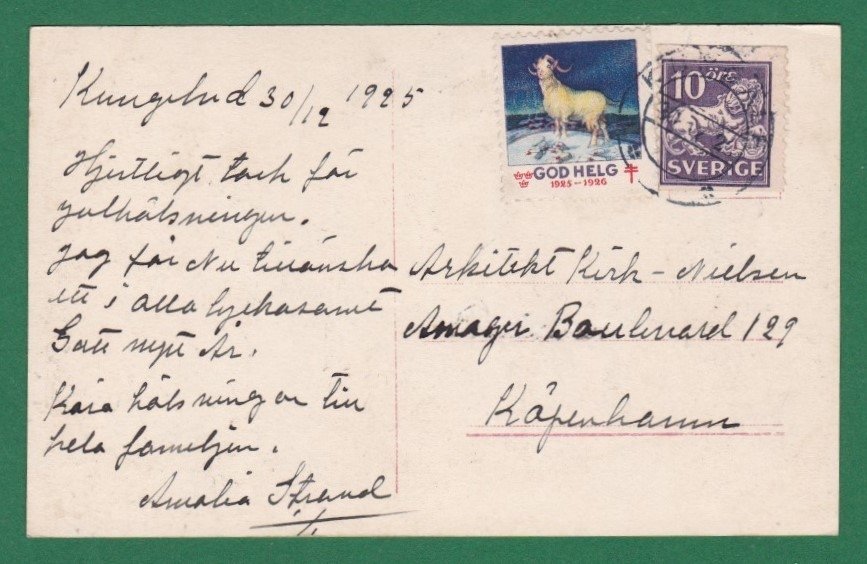 Kungslund 30/12 1925
Hjertligt tack för
julhälsningen.
Jag får Nu tillönska
ett i alla lyckosamt
Gott nytt År.
Kära hälsningar till
hela familjen.
Amalia Strand
GOD HELG
1925-1926
10 ÖRE
SVERIGE
Arkitekt Kirk-Nielsen
Amager Boulevard 129
Köpenhamn